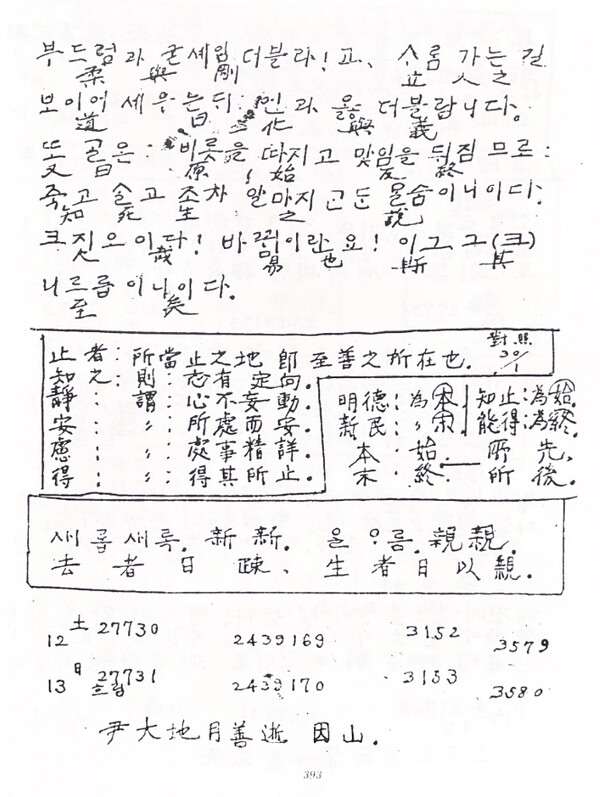 부드럼과 굳셰임 더블라!고、 사롬 가는 길
柔 與 剛 立 人 之
보이어 세우는뒤: 인과 욿 더블랍니다。
道 曰 化 與 義
또 골은: 비롯을 따지고 맞임을 뒤짐 므로:
又 曰 原 始 反 終
죽고 솔고 조차 알마지 근둔 믈슴이니이다.
知 死 生 之 說
크지오이다! 바뀜이란요! 이 그 그(크)
大 哉 易 也 斯 其
니르름이니이다.
至 矣
止者: 所當止之地 卽至善之所在也. 對照 30/1
知之: 則: 志有定向.
靜: 謂: 心不妄動
安: 〃: 所處而安
慮: 〃: 處事精詳
得: 〃: 得其所止.
明德: 為本 知止: 為始.
新民: 為末. 能得: 為終.
本 始 — 所先、
末 終 所後.
새롭새록. 新新. 올ᄋᆞ름. 親親.
去者日疎、 生者日以親.
12 土 27730 2439169 3152 3579
13 日 27731 2439170 3153 3580
흐림
尹大地月善逝 因山.
393